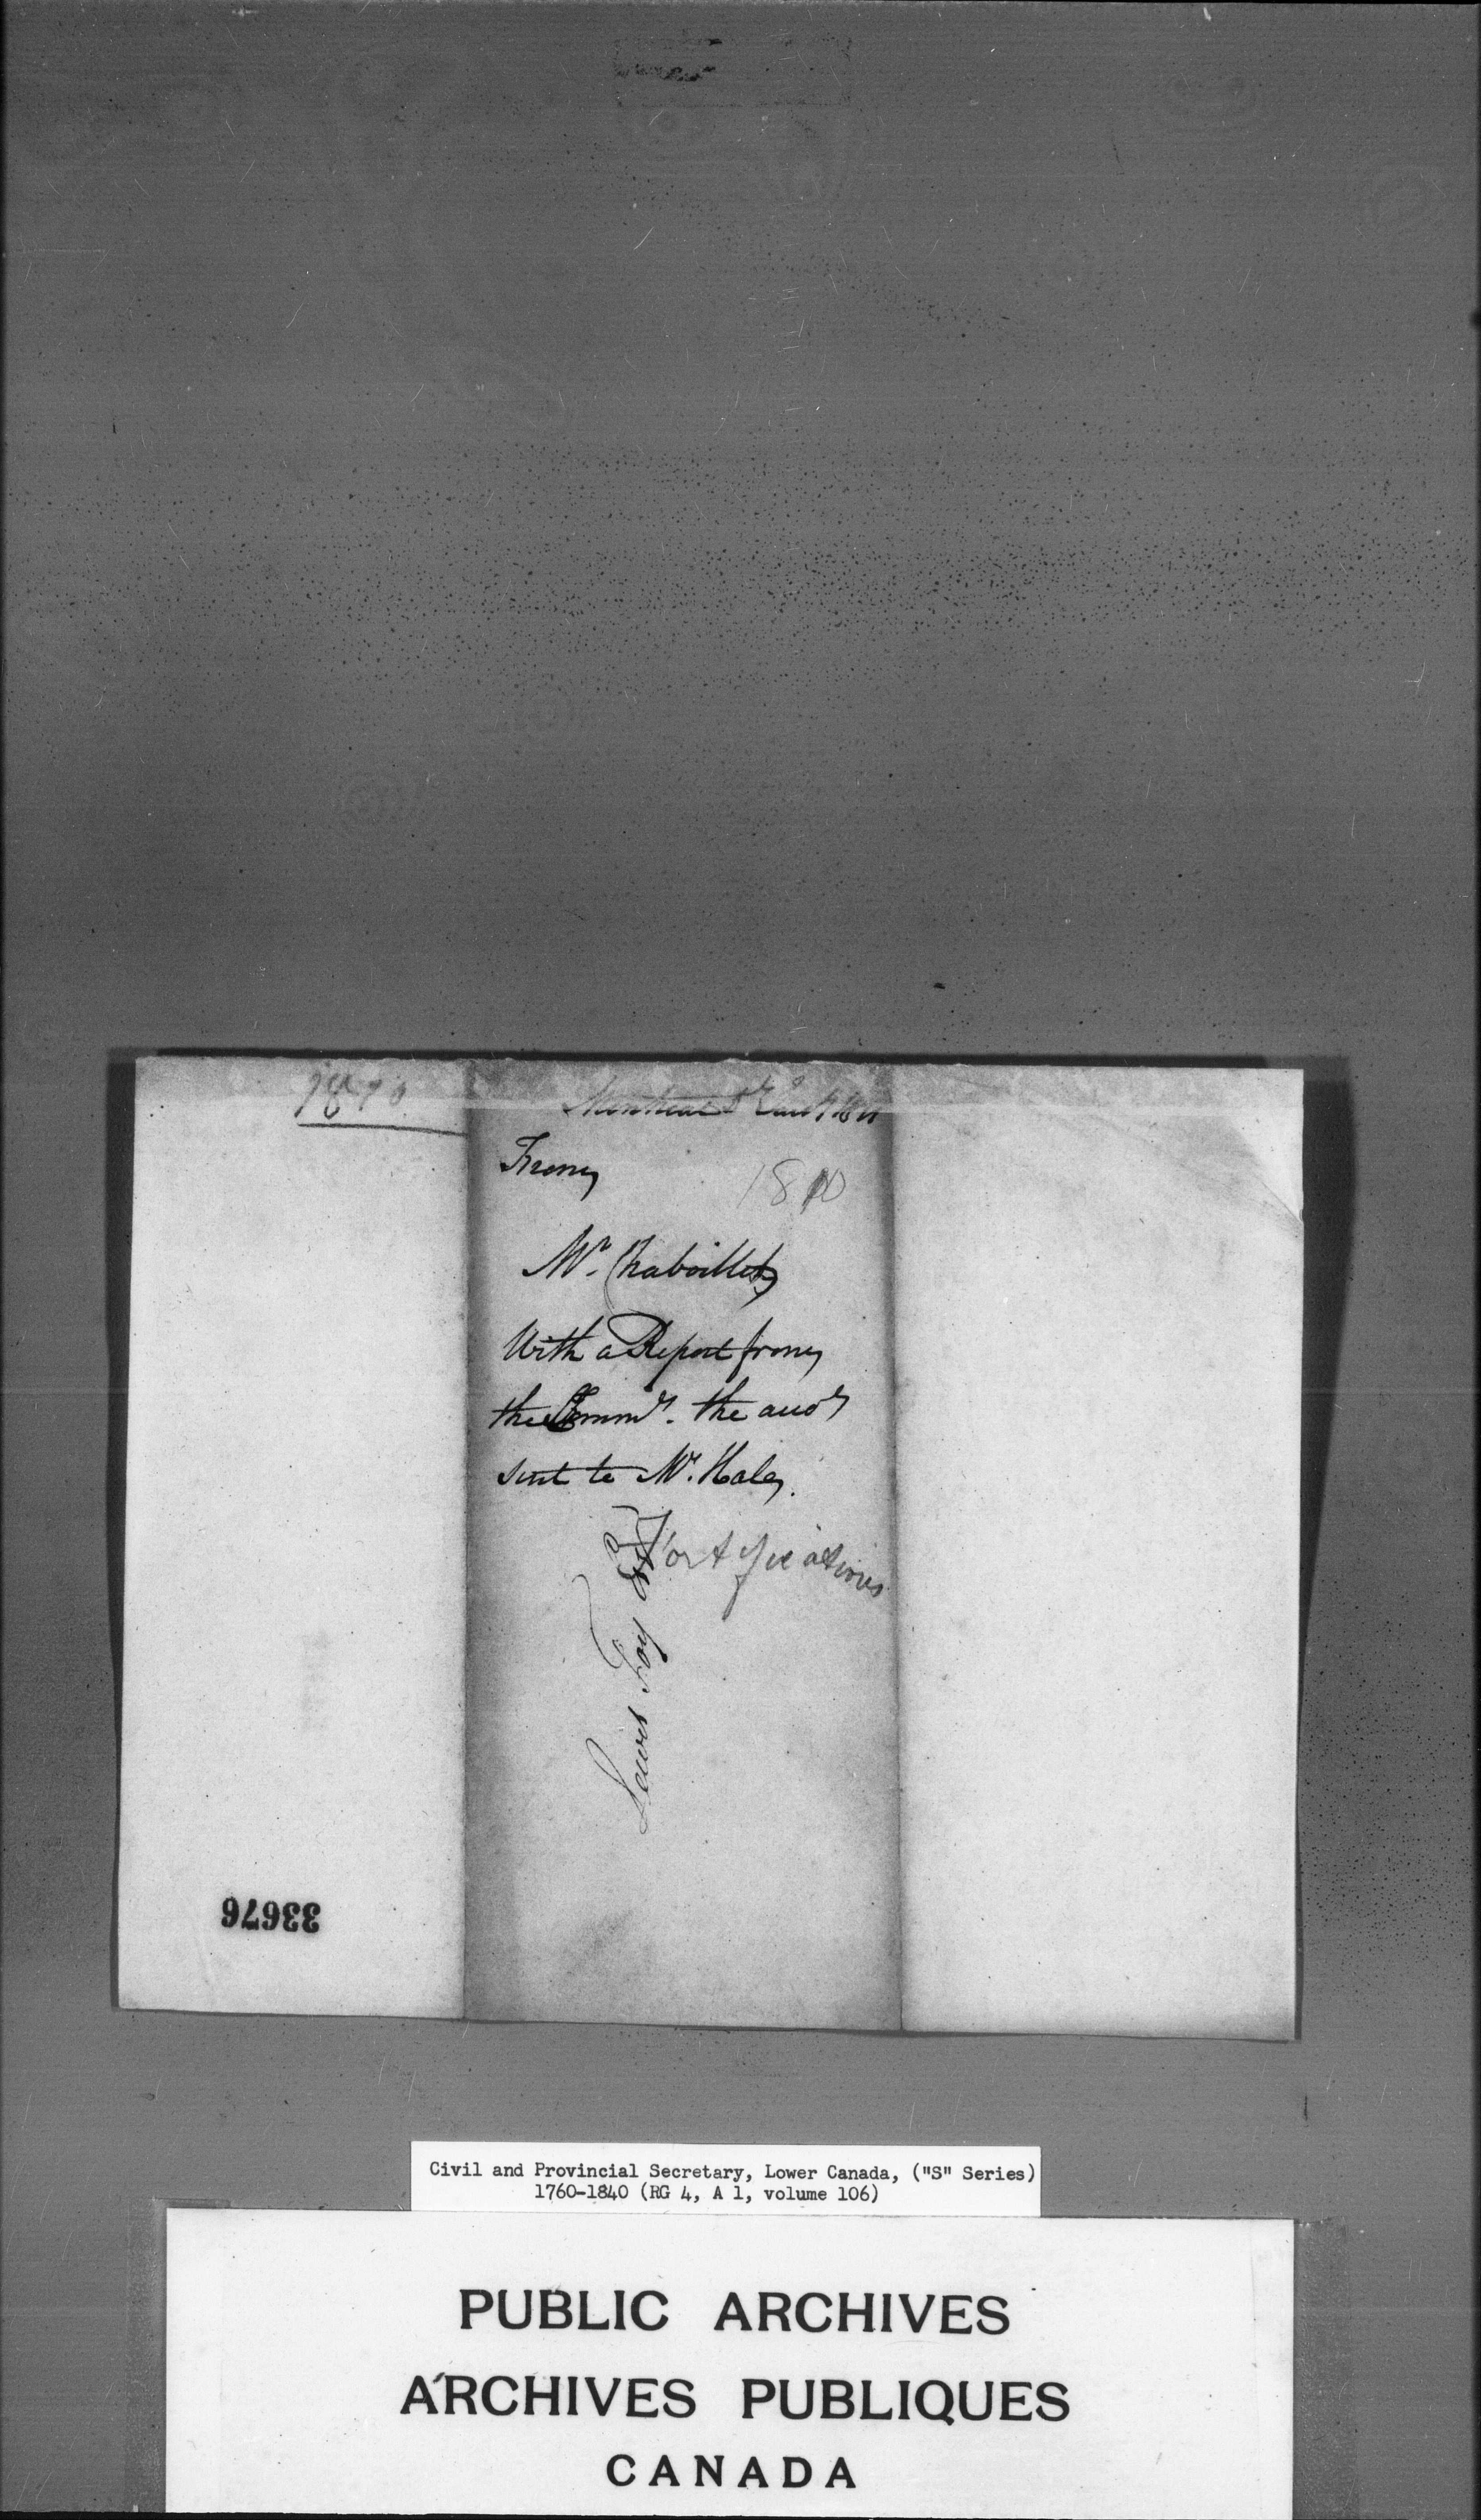 1810
Montreal
From
1810
Mr. Chaboillez
With a Report from
the Commrs. the accots
sent to Mr. Hale,
Fortifications
Lewis Foy Esqr
33676
Civil and Provincial Secretary, Lower Canada, ("S" Series)
1760-1840 (RG 4, A 1, volume 106)
PUBLIC ARCHIVES
ARCHIVES PUBLIQUES
CANADA